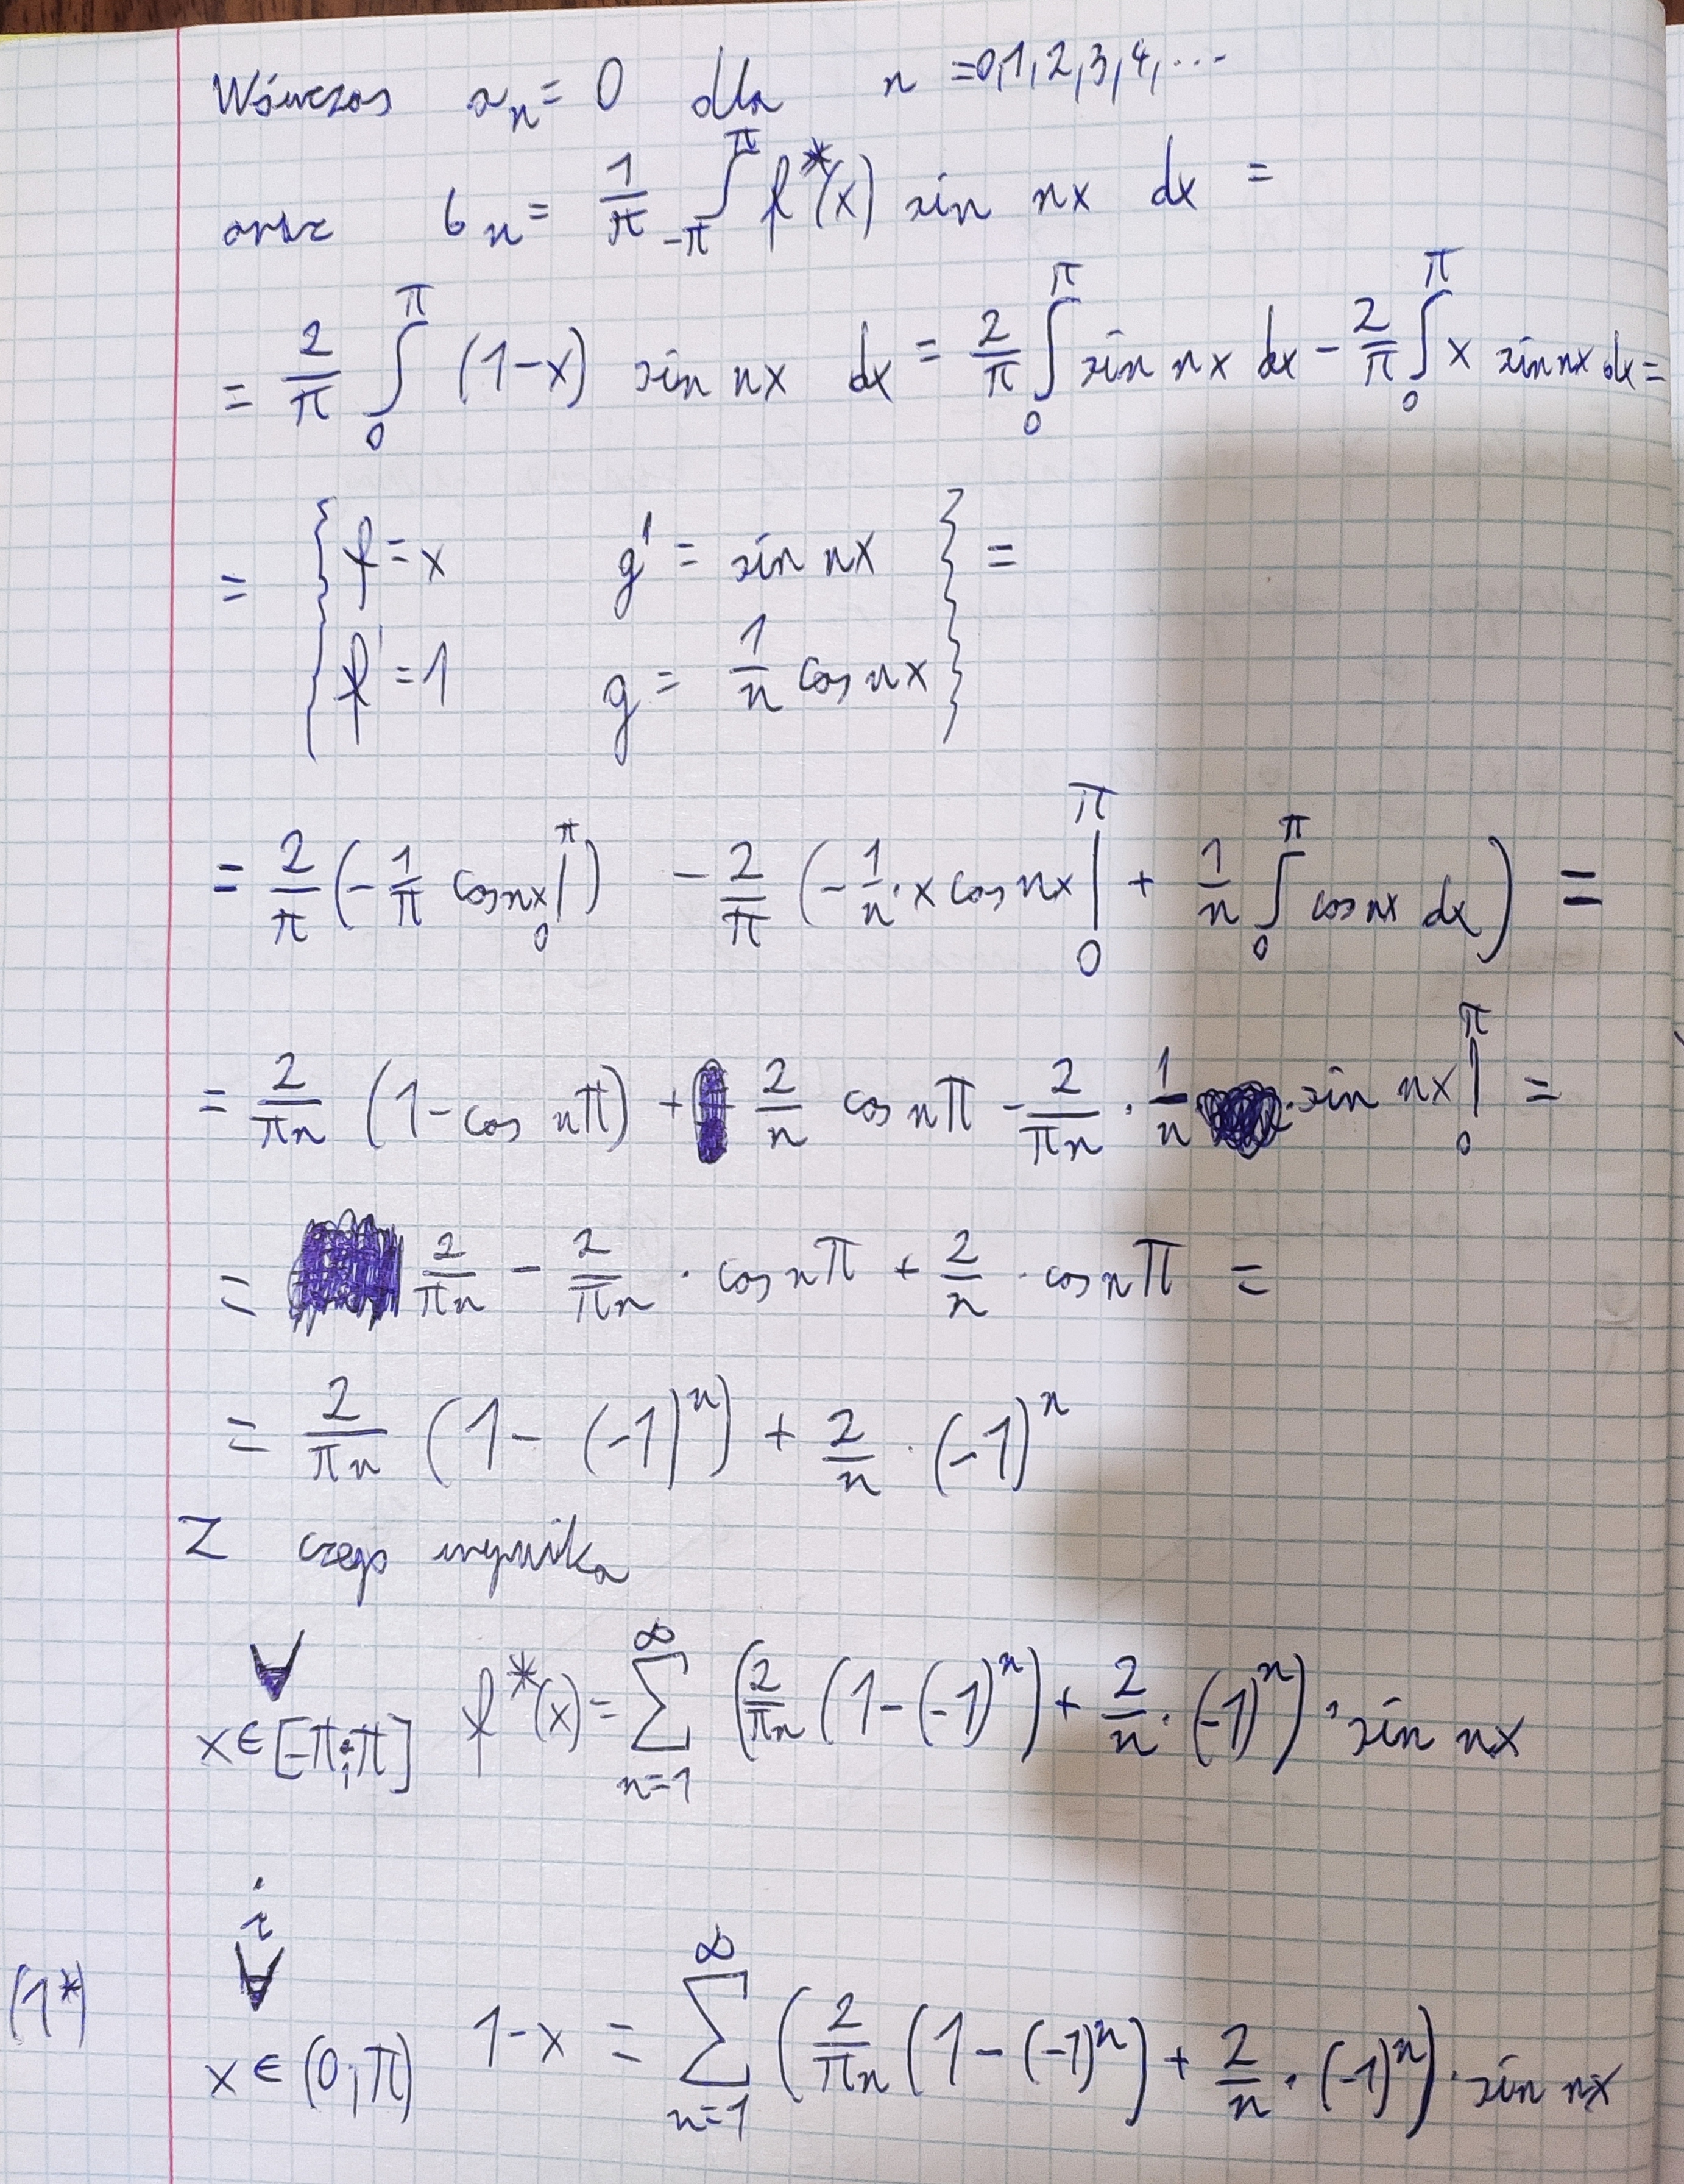 Wówczas aₙ = 0 dla n = 0,1,2,3,4,...
oraz bₙ = 1/π ∫_{-π}^{π} f*(x) sin nx dx =
= 2/π ∫_0^π (1-x) sin nx dx = 2/π ∫_0^π sin nx dx - 2/π ∫_0^π x sin nx dx =
= { f = x g' = sin nx } =
f' = 1 g = 1/n cos nx
= 2/π (-1/π cos nx |_0^π) - 2/π (-1/n · x cos nx |_0^π + 1/n ∫_0^π cos nx dx) =
= 2/πn (1 - cos nπ) + 2/n cos nπ - 2/πn · 1/n · sin nx |_0^π =
= 2/πn - 2/πn · cos nπ + 2/n · cos nπ =
= 2/πn (1 - (-1)^n) + 2/n · (-1)^n
Z czego wynika
∀ x∈[-π;π] f*(x) = ∑_{n=1}^∞ (2/πn (1 - (-1)^n) + 2/n · (-1)^n) · sin nx
i
(1*) ∀ x∈(0;π) 1-x = ∑_{n=1}^∞ (2/πn (1 - (-1)^n) + 2/n · (-1)^n) · sin nx